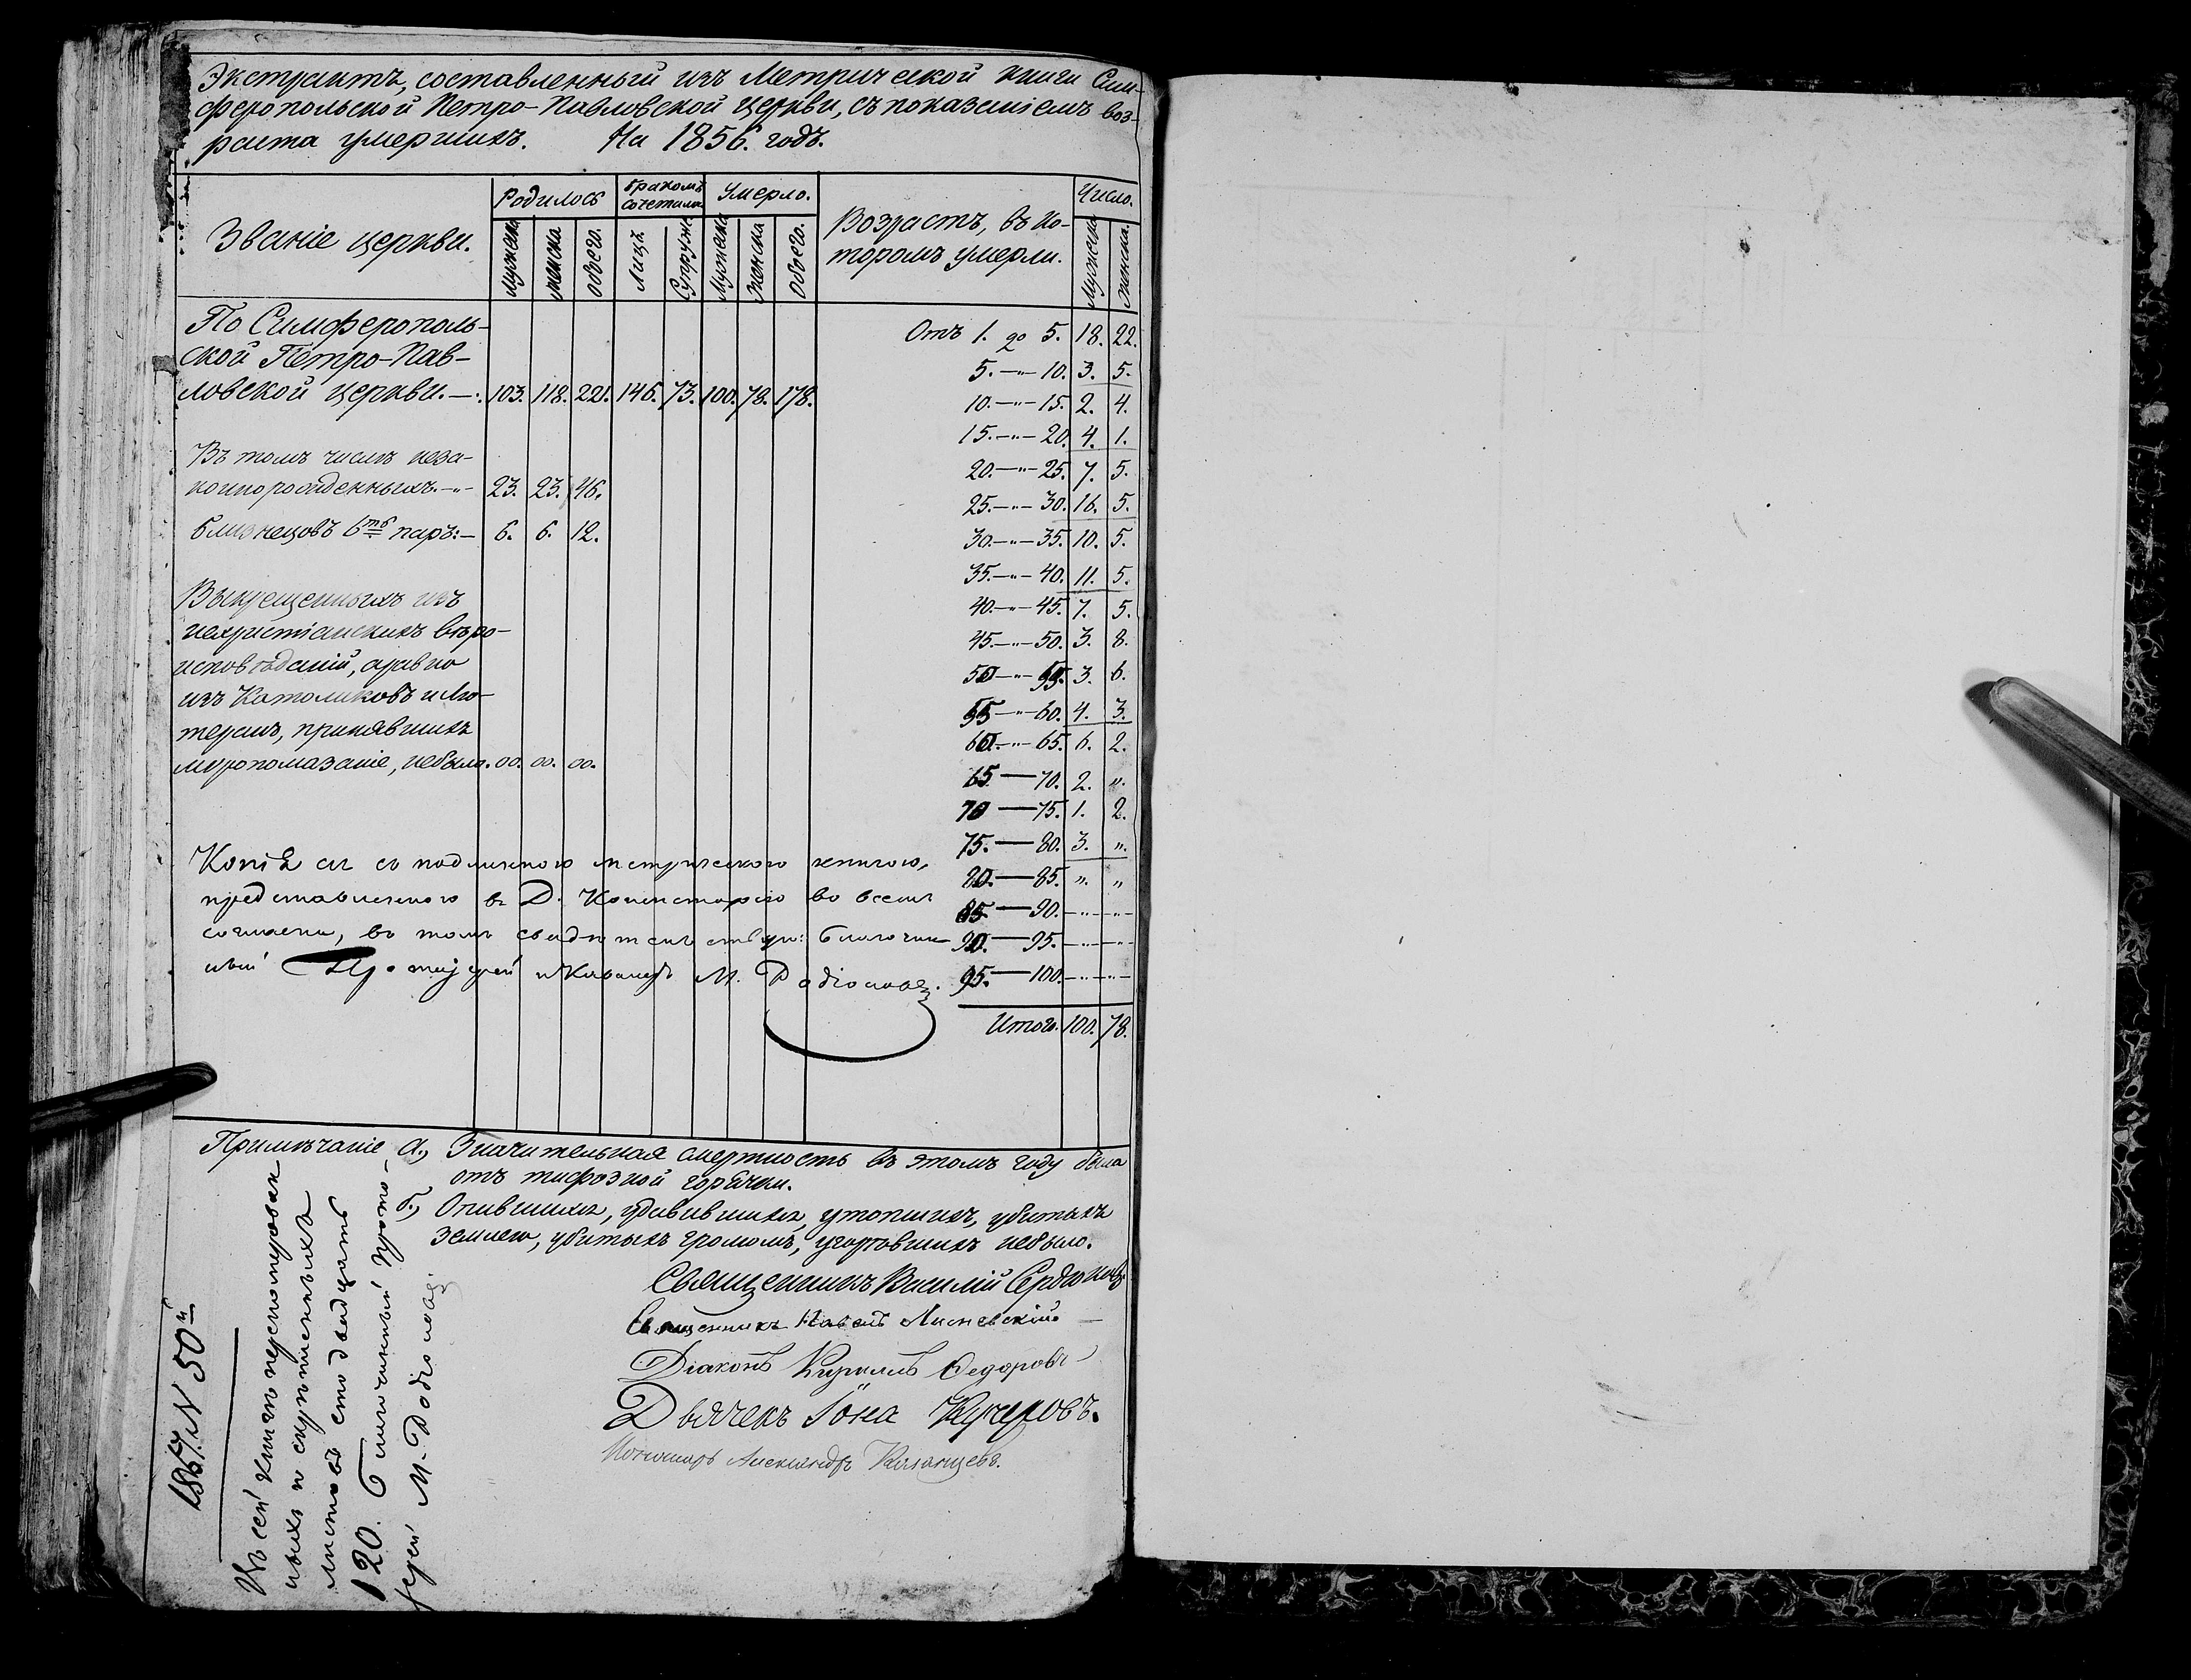 Экстрактъ, составленный изъ Метрической книги Сим-
феропольской Петро-Павловской церкви, съ показаніемъ воз-
раста умершихъ. На 1856. годъ.
Званіе церкви.
Родилось
бракомъ сочетали
Умерло.
Возрастъ, въ ко-
торомъ умерли.
Число.
Мужеска
женска
Обоего.
Лицъ
Супруж.
Мужеска
женска
Обоего.
Мужеска
женска.
По Симферополь-
ской Петро-Пав-
ловской церкви. — 103. 118. 221. 146. 73. 100. 78. 178.
Въ томъ числѣ неза-
коннорожденныхъ. -"- 23. 23. 46.
Близнецовъ 6ть паръ: — 6. 6. 12.
Выкрещенныхъ изъ
нехристіанскихъ вѣро-
исповѣданій, а равно
изъ Католиковъ и Лю-
теранъ, принявшихъ
мѵропомазаніе, небыло. 00. 00. 00.
Отъ 1. до 5. 18. 22.
5. -"- 10. 3. 5.
10. -"- 15. 2. 4.
15. -"- 20. 4. 1.
20. -"- 25. 7. 5.
25. -"- 30. 16. 5.
30. -"- 35. 10. 5.
35. -"- 40. 11. 5.
40. -"- 45. 7. 5.
45. -"- 50. 3. 8.
50 -"- 55. 3. 6.
55 -"- 60. 4. 3.
60. -"- 65. 6. 2.
65 — 70. 2. "
70 — 75. 1. 2.
75. — 80. 3. "
80. — 85. " "
85. — 90. -"- -"-
90. — 95. -"- -"-
95. — 100. -"- -"-
Итого. 100. 78.
Копія сія съ подлинною метрическою книгою,
представленною въ Д. Консисторію во всемъ
согласна, въ томъ свидѣтельствую: Благочин-
ный Протоіерей и Кавалеръ М. Родіоновъ.
Примѣчаніе а., Значительная смертность въ этомъ году была
отъ тифозной горячки.
б., Опившихся, удавившихся, утопшихъ, убитыхъ
землею, убитыхъ громомъ, угорѣвшихъ небыло.
Священникъ Василій Сердюковъ
Священникъ Павелъ Лисневскій.
Діаконъ Кириллъ Ѳедоровъ
Дьячекъ Іона Кучеровъ.
Пономарь Александръ Казанцевъ.
Въ сей книгѣ пронумерован-
ныхъ и скрѣпленныхъ
листовъ сто двадцать
120. Благочинный Прото-
іерей М. Родіоновъ
1867. N 50й